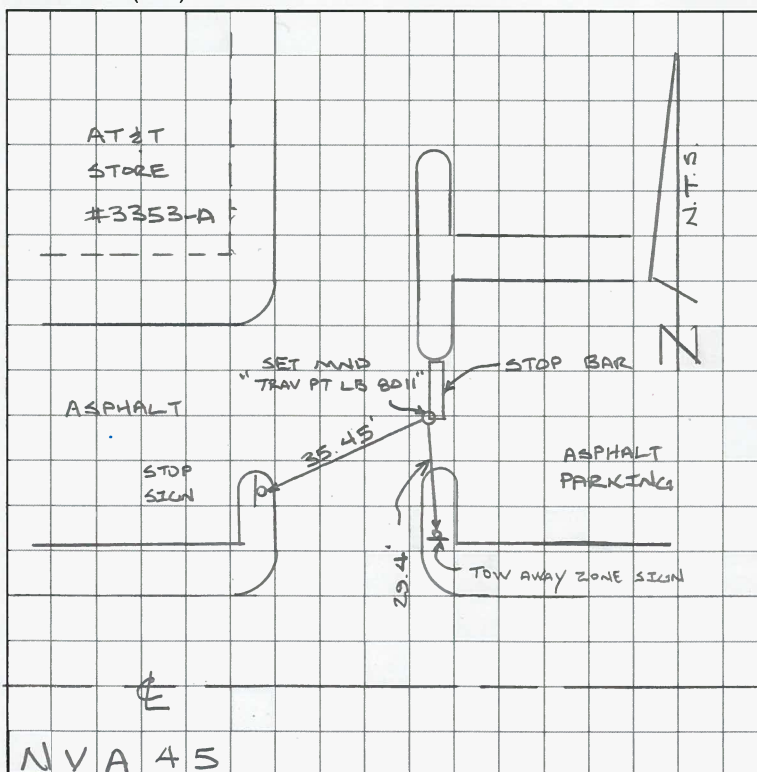 AT&T
STORE
#3353-A
N.T.S.
N
SET MND
"TRAV PT LB 8011"
STOP BAR
ASPHALT
35.45'
STOP
SIGN
ASPHALT
PARKING
29.4'
TOW AWAY ZONE SIGN
℄
NVA 45